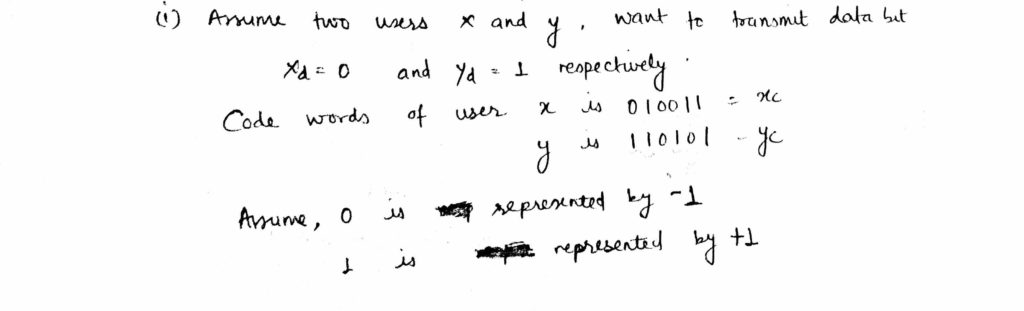 (i) Assume two users x and y, want to transmit data bit
Xd = 0 and Yd = 1 respectively.
Code words of user x is 010011 = xc
y is 110101 - yc
Assume, 0 is represented by -1
1 is represented by +1